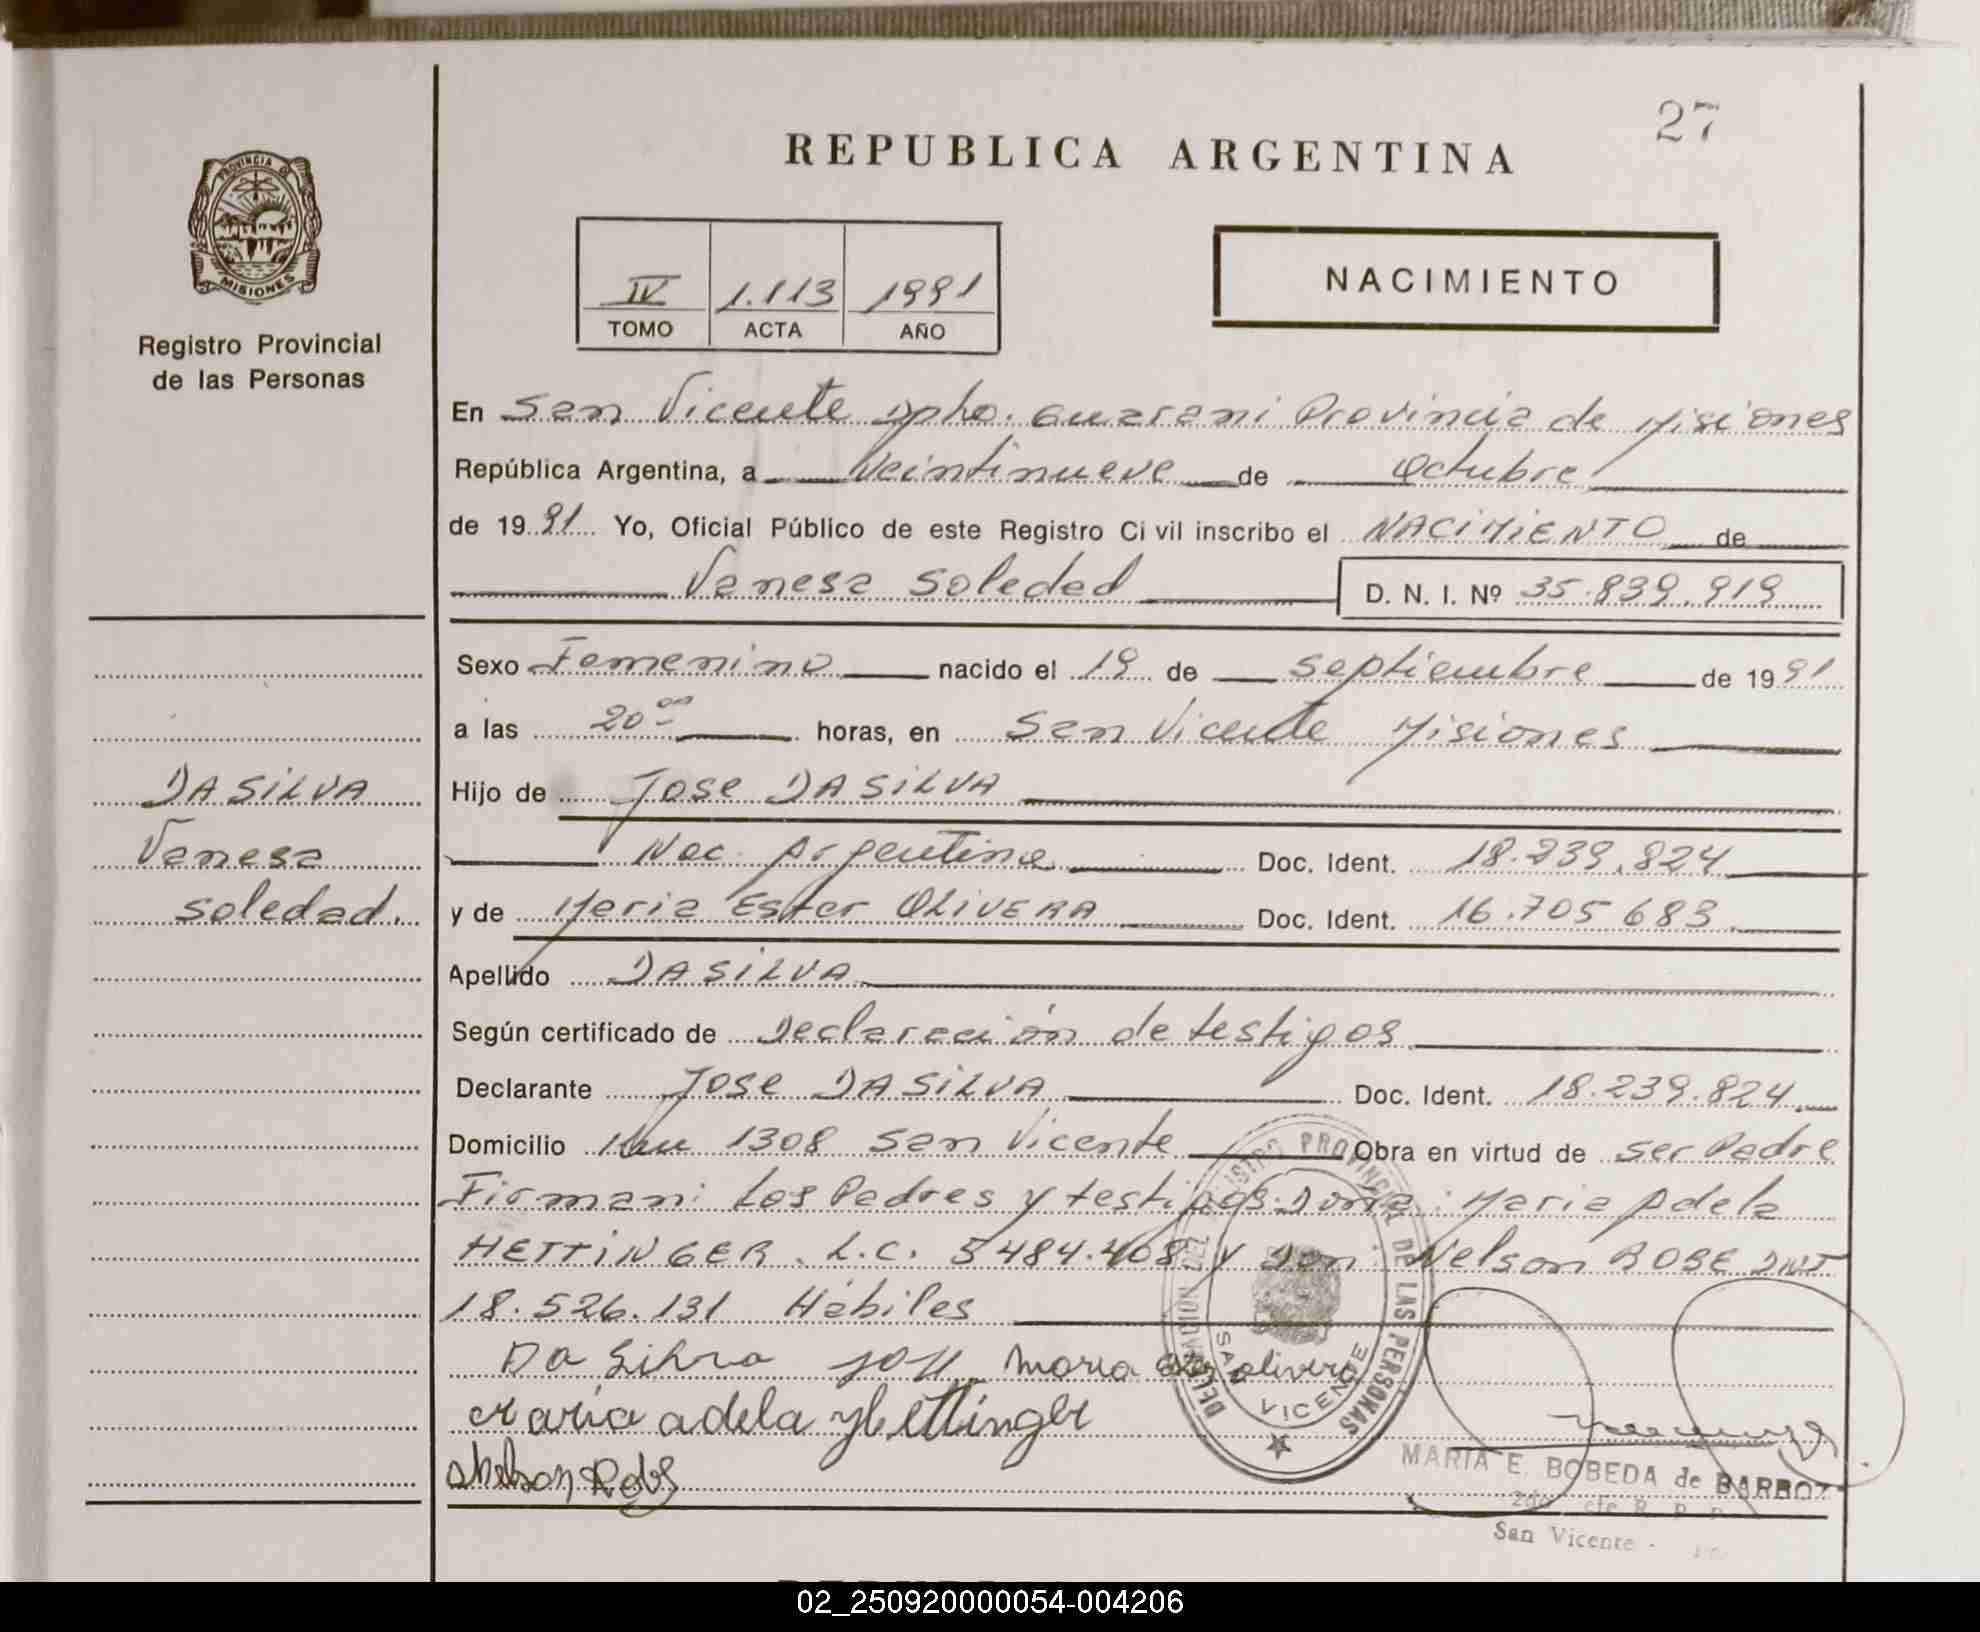 27
REPUBLICA ARGENTINA
PROVINCIA DE
MISIONES
Registro Provincial
de las Personas
IV 1.113 1991
TOMO ACTA AÑO
NACIMIENTO
En San Vicente Dpto. Guarani Provincia de Misiones
República Argentina, a Veintinueve de Octubre
de 1991 Yo, Oficial Público de este Registro Civil inscribo el NACIMIENTO de
Vanesa Soledad D. N. I. Nº 35.839.919
Sexo Femenino nacido el 19 de Septiembre de 1991
a las 20 00 horas, en San Vicente Misiones
DA SILVA
Vanesa
Soledad.
Hijo de Jose DA SILVA
Nac. Argentina Doc. Ident. 18.239.824
y de Maria Ester OLIVERA Doc. Ident. 16.705683
Apellido DA SILVA
Según certificado de Declaración de testigos
Declarante Jose DA SILVA Doc. Ident. 18.239.824
Domicilio 1308 San Vicente Obra en virtud de ser Padre
Firman: Los Padres y testigos: Doña: Maria Adela
HETTINGER. L.C. 5484.408 y Don Nelson ROBE DNI
18.526.131 Hábiles
Da Silva José Maria Ester olivera
Maria adela Hettinger
Nelson Robe
DELEGACION DEL REGISTRO PROVINCIAL DE LAS PERSONAS
SAN VICENTE
MARIA E. BOBEDA de BARBOZ
San Vicente -
02_250920000054-004206